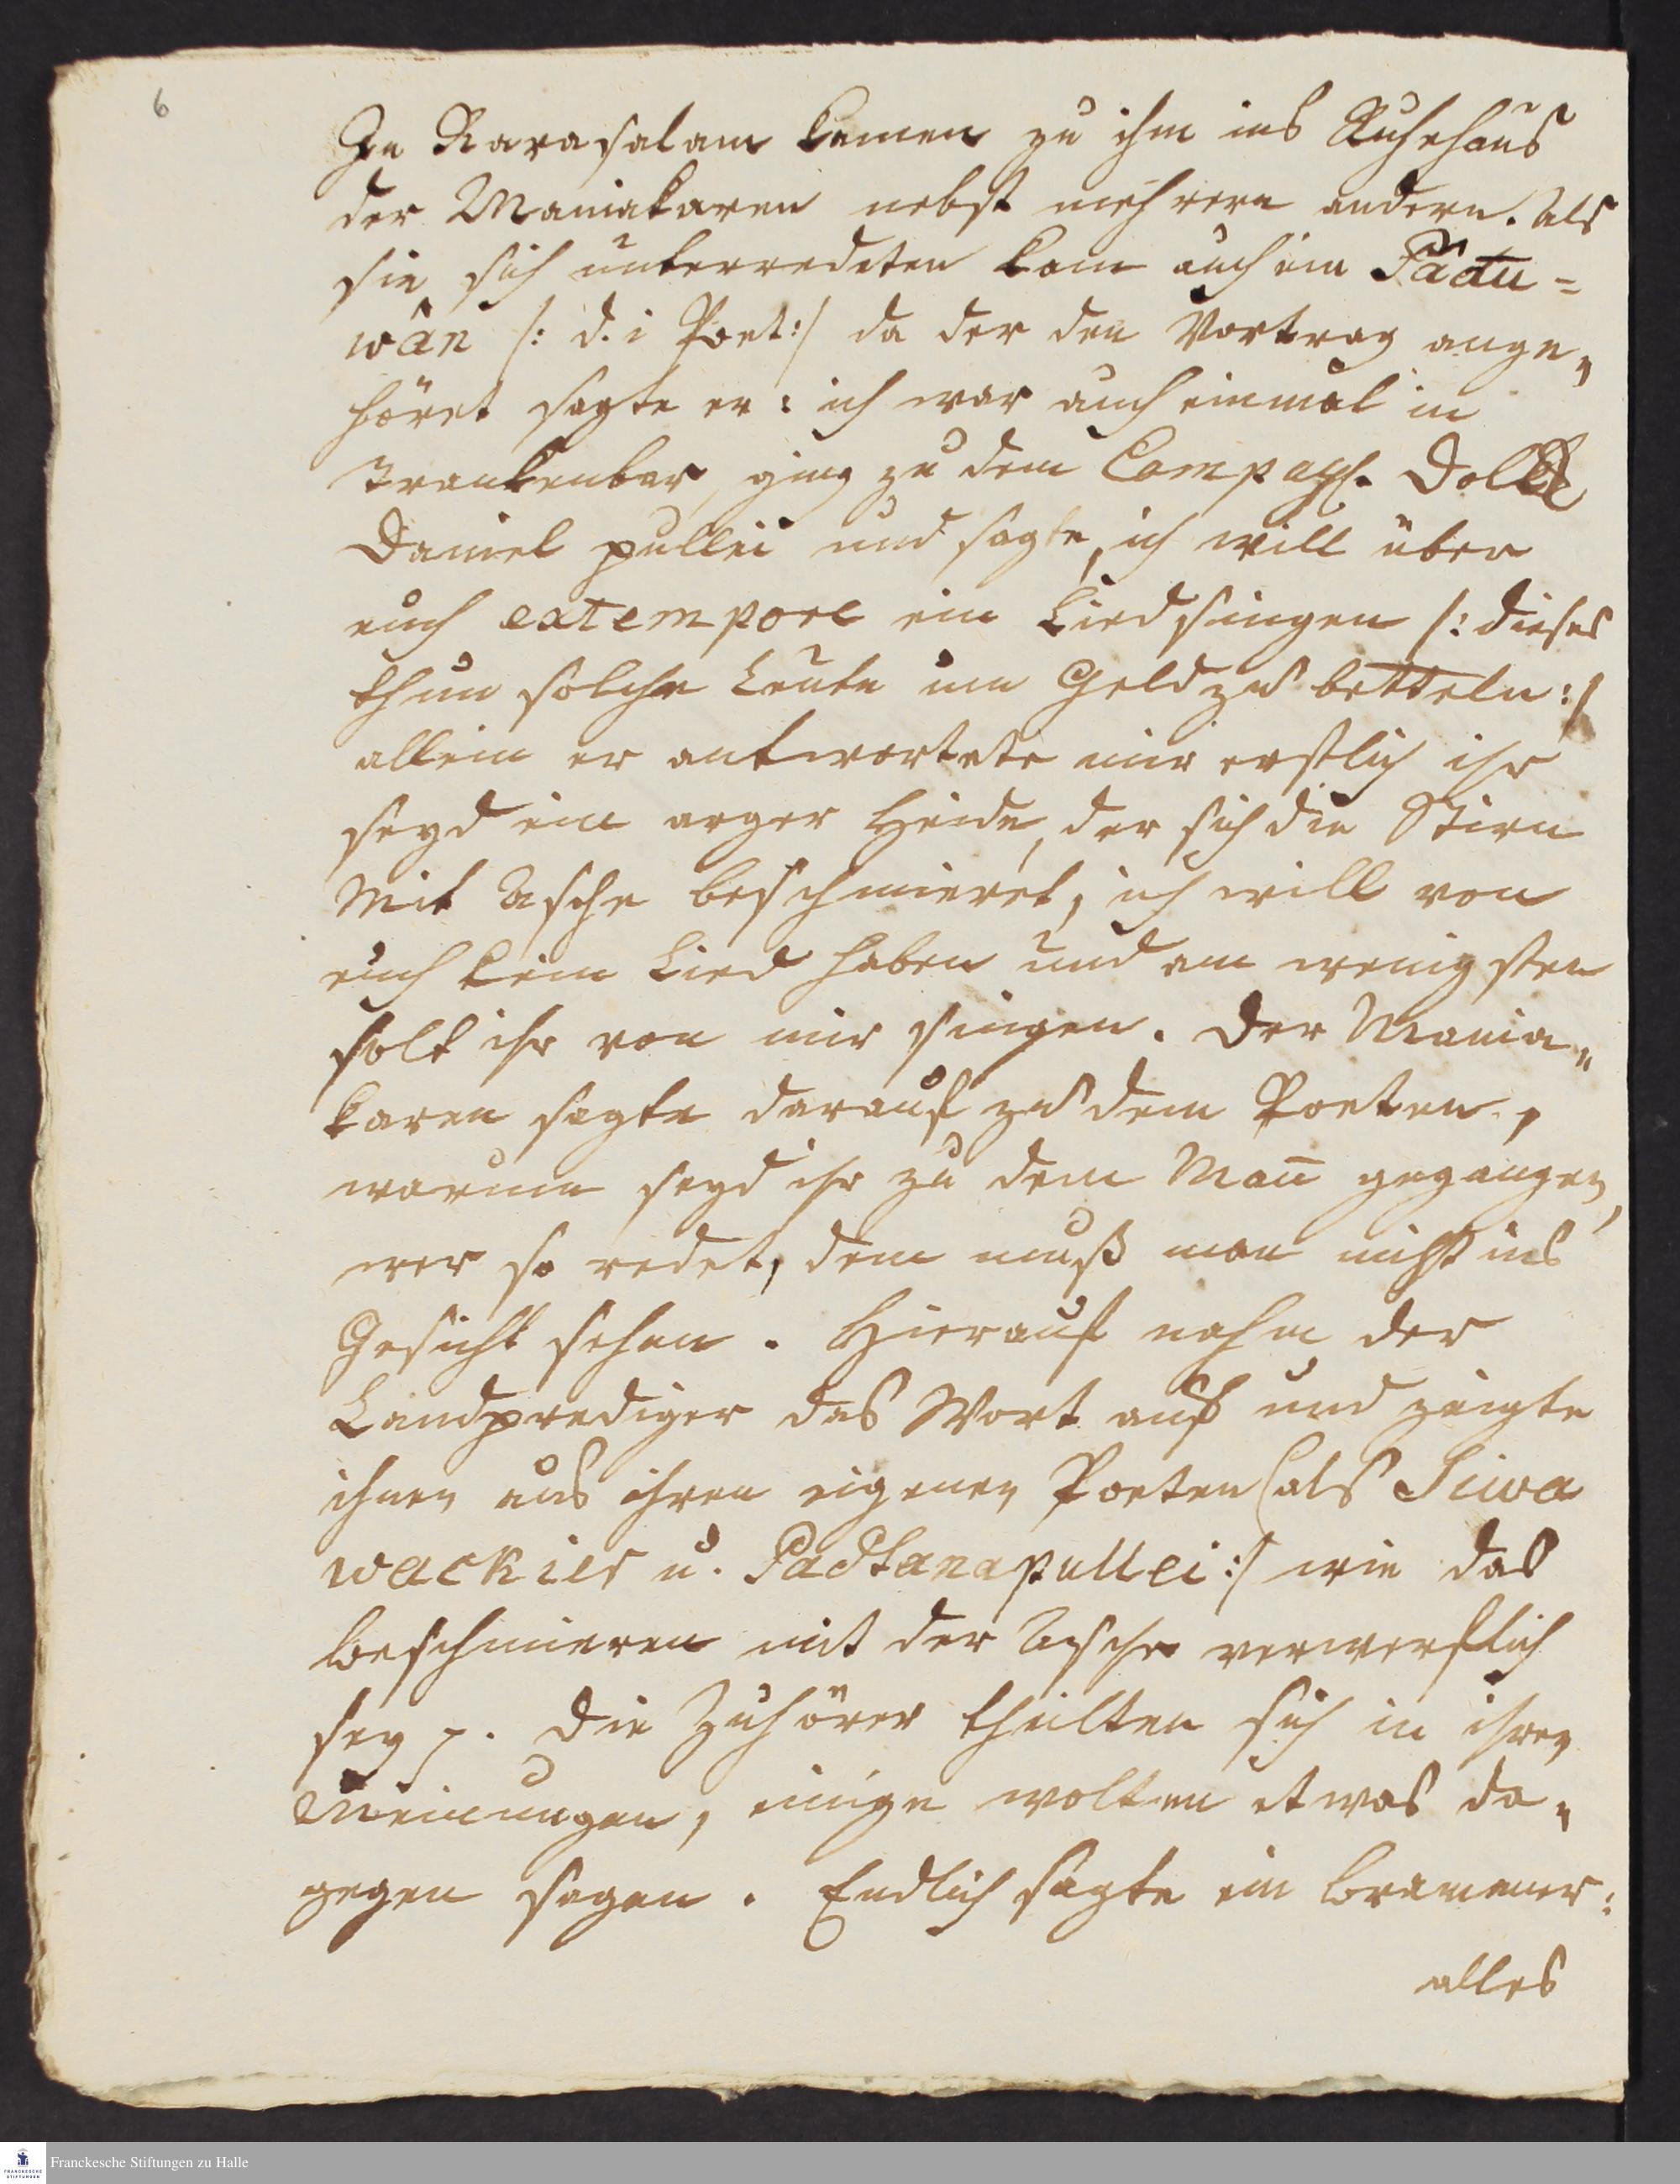 6
In Narasalam kamen zu ihm ins Ruhehaus
der Maniakaren nebst mehrern andern. Als
sie sich unterredeten kam auch ein Pâdu=
wân /: d. i Poet:/ da der den Vortrag ange„
höret sagte er: ich war auch einmal in
Trankenbar, ging zu dem Compagn. Dolb.
Daniel pullei und sagte, ich will über
euch extempore ein Lied singen /: dieses
thun solche Leute um Geld zu betteln:/
allein er antwortete mir erstlich ihr
seyd ein arger Heide, der sich die Stirn
Mit Asche beschmieret, ich will von
euch kein Lied haben und am wenigsten
solt ihr von mir singen. Der Mania„
karen sagte darauf zu dem Poeten,
warum seyd ihr zu dem Mañ gegangen,
wer so redet, dem muß man nicht ins
Gesicht sehen. Hierauf nahm der
Landprediger das Wort auf und zeigte
ihnen aus ihren eigenen Poeten (als Siwa
wackier u. Padtanapullei:/ wie das
beschmieren mit der Asche verwerflich
sey p. Die Zuhörer theilten sich in ihren
Meinungen, einige wolten etwas da„
gegen sagen. Endlich sagte ein Bramener:
alles
Franckesche Stiftungen zu Halle
FRANCKESCHE
STIFTUNGEN